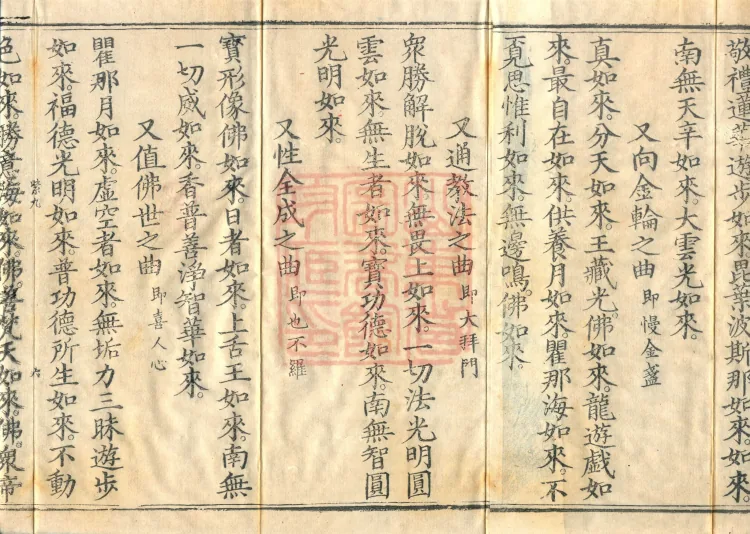 敬禮蓮華遊步如來畢葉波斯那如來如來。
南無天辛如來。大雲光如來。
又向金輪之曲 即慢金盞
真如來。分天如來。王藏光佛如來。龍遊戲如
來。最自在如來。供養月如來。瞿那海如來。不
覔思惟利如來。無邊鳴佛如來。
又通教法之曲 即大拜門
衆勝解脫如來。無畏上如來。一切法光明圓
雲如來。無生者如來。寶功德如來。南無智圓
光明如來。
又性全成之曲 即也不羅
寶形像佛如來。日者如來。上舌王如來。南無
一切威如來。香普善淨智華如來。
又值佛世之曲 即喜人心
瞿那月如來。虛空者如來。無垢力三昧遊步
如來。福德光明如來。普功德所生如來。不動
紫九 六
色如來。勝意海如來。佛。善梵天如來。佛。衆帝